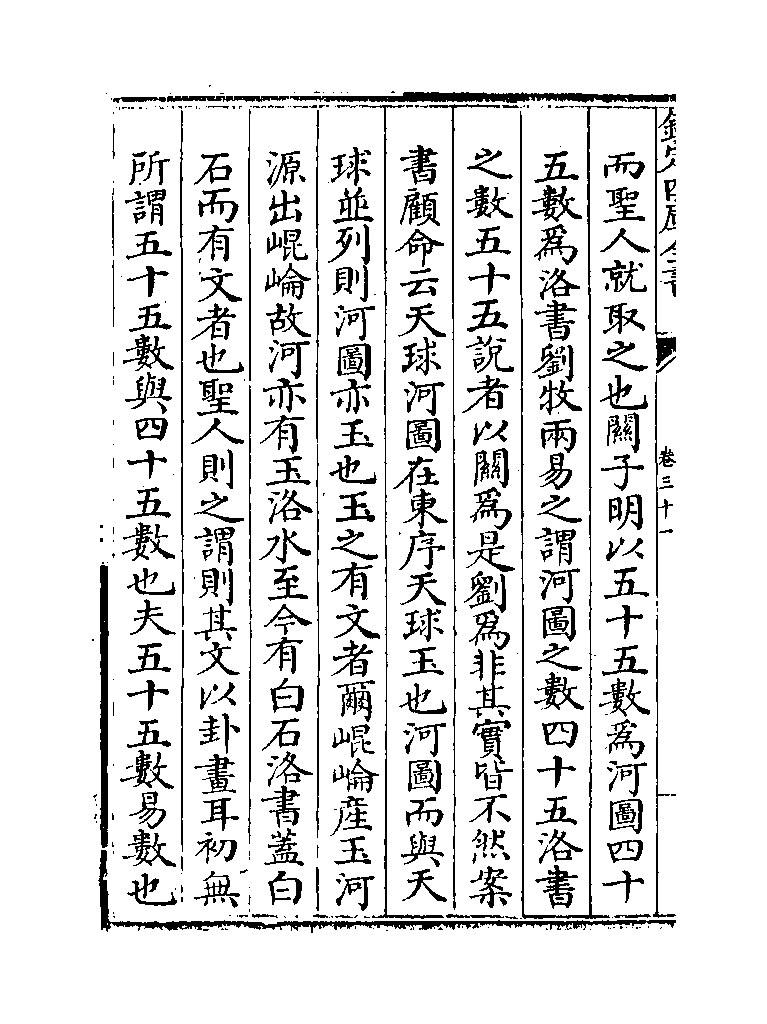 欽定四庫全書
卷三十一
而聖人就取之也關子明以五十五數爲河圖四十
五數爲洛書劉牧兩易之謂河圖之數四十五洛書
之數五十五說者以關爲是劉爲非其實皆不然案
書顧命云天球河圖在東序天球玉也河圖而與天
球並列則河圖亦玉也玉之有文者爾崐崘產玉河
源出崐崘故河亦有玉洛水至今有白石洛書蓋白
石而有文者也聖人則之謂則其文以卦畫耳初無
所謂五十五數與四十五數也夫五十五數易數也